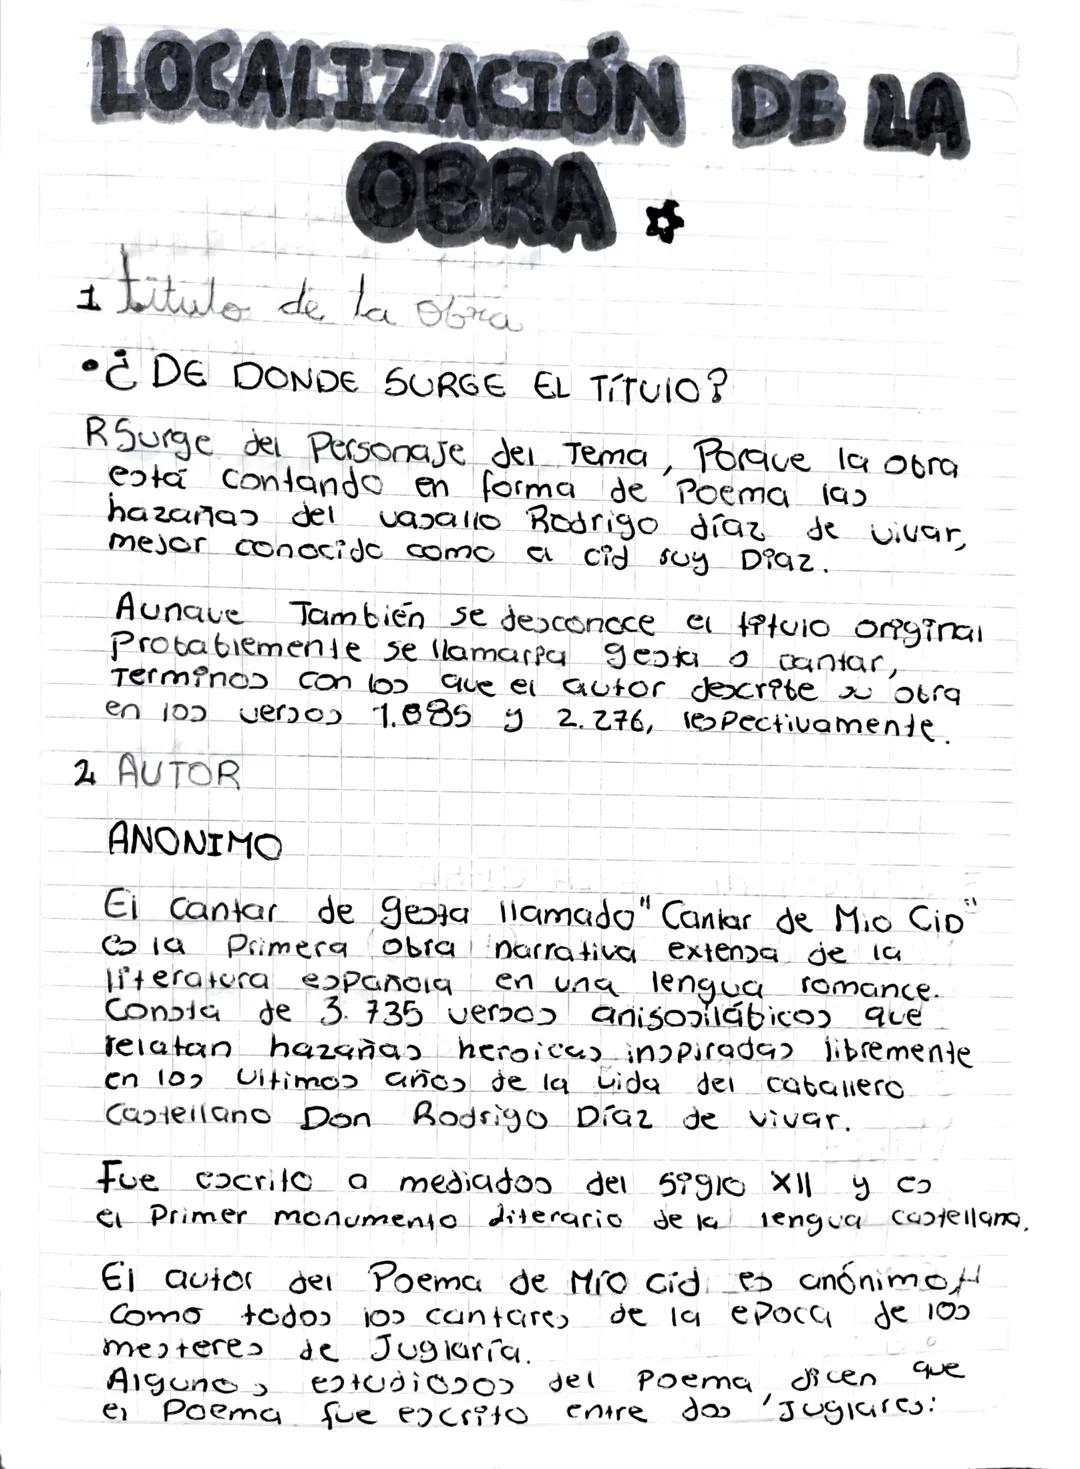 LOCALIZACIÓN DE LA
OBRA
1 titulo de la obra
• ¿DE DONDE SURGE EL TíTUlO?
R Surge del Personaje del Tema, Porque la obra
está contando en forma de Poema las
hazañas del vasallo Rodrigo díaz de vivar,
mejor conocido como el cid ruy Diaz.
Aunque También se desconoce el titulo original
Probablemente se llamaría gesta o cantar,
Terminos con los que el autor describe su obra
en los versos 1.085 y 2.276, respectivamente.
2 AUTOR
ANONIMO
El cantar de gesta llamado "Cantar de Mio CiD"
es la Primera obra narrativa extensa de la
literatura española en una lengua romance.
Consta de 3.735 versos anisosilábicos que
relatan hazañas heroicas inspiradas libremente
en los Ultimos años de la vida del caballero
Castellano Don Rodrigo Díaz de vivar.
Fue escrito a mediados del siglo XII y es
el Primer monumento literario de la lengua castellana.
El autor del Poema de Mío Cid es anónimo,
Como todos los cantares de la epoca de los
mesteres de Juglaría.
Algunos estudiosos del Poema, dicen que
el Poema fue escrito entre dos Juglares: